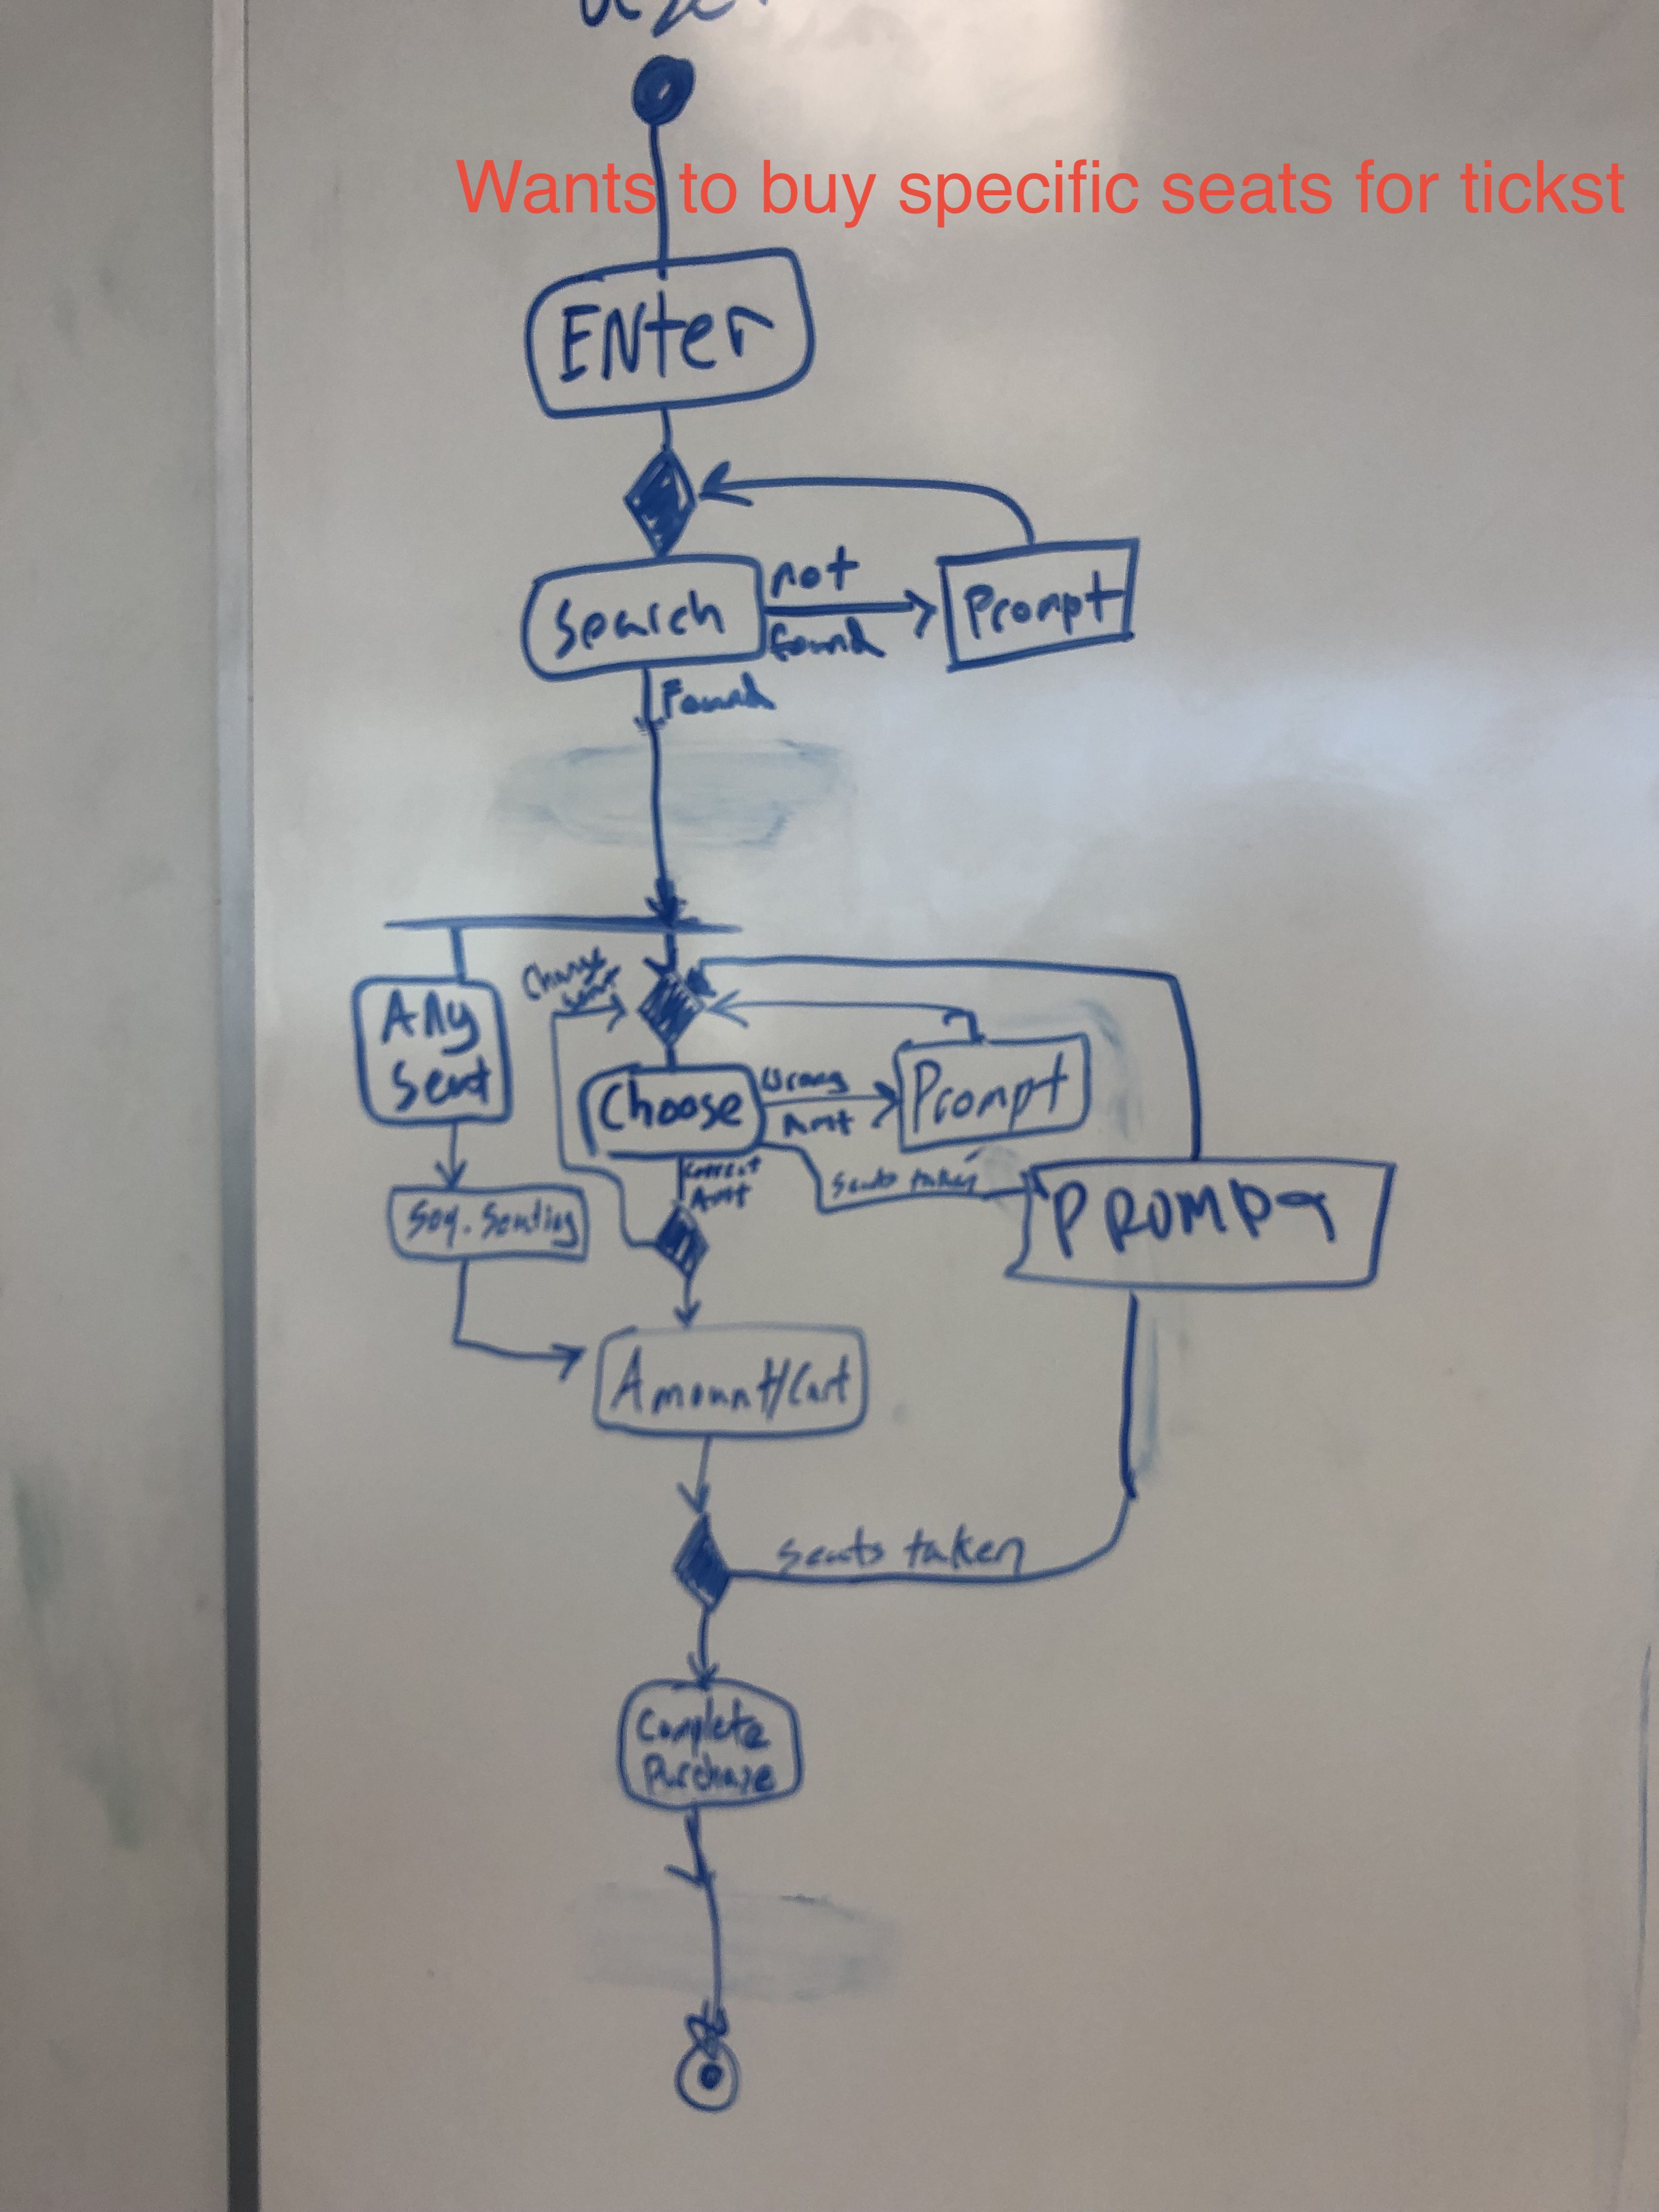 Wants to buy specific seats for tickst
ENter
not
Search
Prompt
found
Found
Change
Any
Seat
Choose
Wrong
Amt
Prompt
Correct
Amt
Seats taken
PROMPT
Seq. Seating
Amount/Cart
seats taken
Complete
Purchase